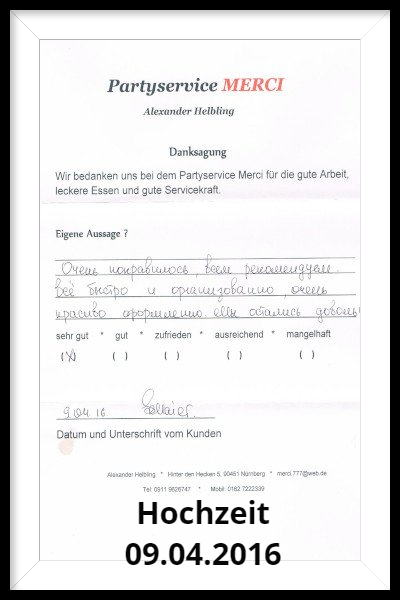 Partyservice MERCI
Alexander Helbling
Danksagung
Wir bedanken uns bei dem Partyservice Merci für die gute Arbeit,
leckere Essen und gute Servicekraft.
Eigene Aussage ?
Очень понравилось, всем рекомендуем.
Всё быстро и организованно, очень
красиво оформленно. Мы остались довольны
sehr gut * gut * zufrieden * ausreichend * mangelhaft
(X) ( ) ( ) ( ) ( )
9.04.16
Datum und Unterschrift vom Kunden
Alexander Helbling * Hinter den Hecken 5, 90451 Nürnberg * merci.777@web.de
Tel: 0911 9626747 * Mobil: 0162 7222339
Hochzeit
09.04.2016